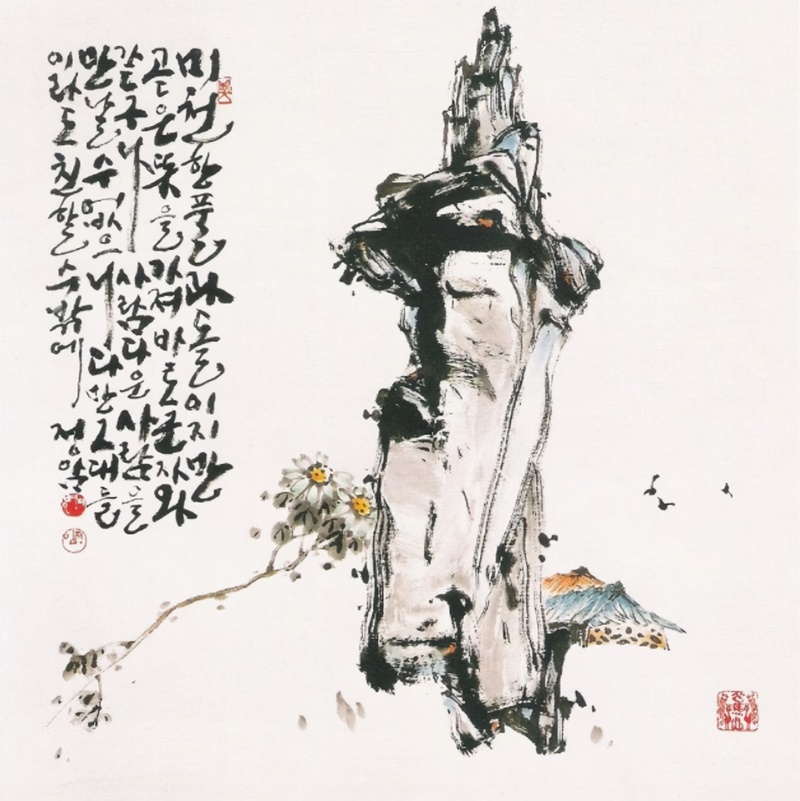 미천한 풀과 돌이지만
곧은 뜻을 가져 바로 군자와
같구나 사람다운 사람을
만날 수 없으니 다만 그대들
이라도 친할 수밖에
정암